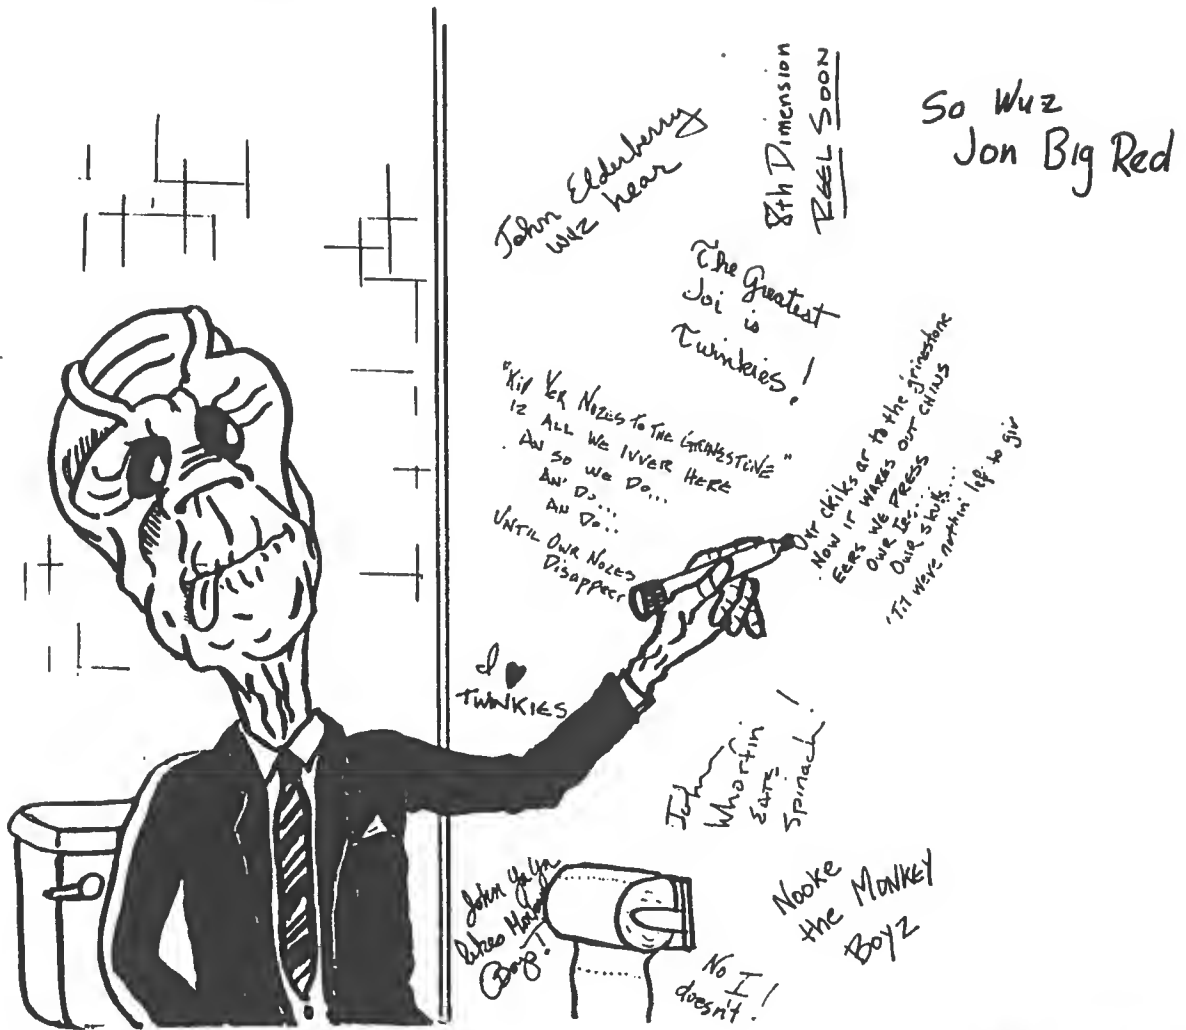 8th Dimension
REEL SOON
So Wuz
Jon Big Red
John Elderberry
wuz hear
The Greatest
Joi is
Twinkies!
"Kip YER NOZES TO THE GRINESTONE"
IZ ALL WE IVVER HERE
AN SO WE DO...
AN' DO...
AN DO...
UNTIL OWR NOZES
Disappeer
Owr chiks ar to the grinestone
NOW IT WARES OUT CHINS
EERS WE PRESS
OWR IES...
OWR SKULS...
'Til were nothin left to giv
I ♥
TWINKIES
John
Whorfin
Eats
Spinach!
John Ya Ya
likes Monkey
Boyz!
No I
doesn't!
Nooke
the MONKEY
Boyz